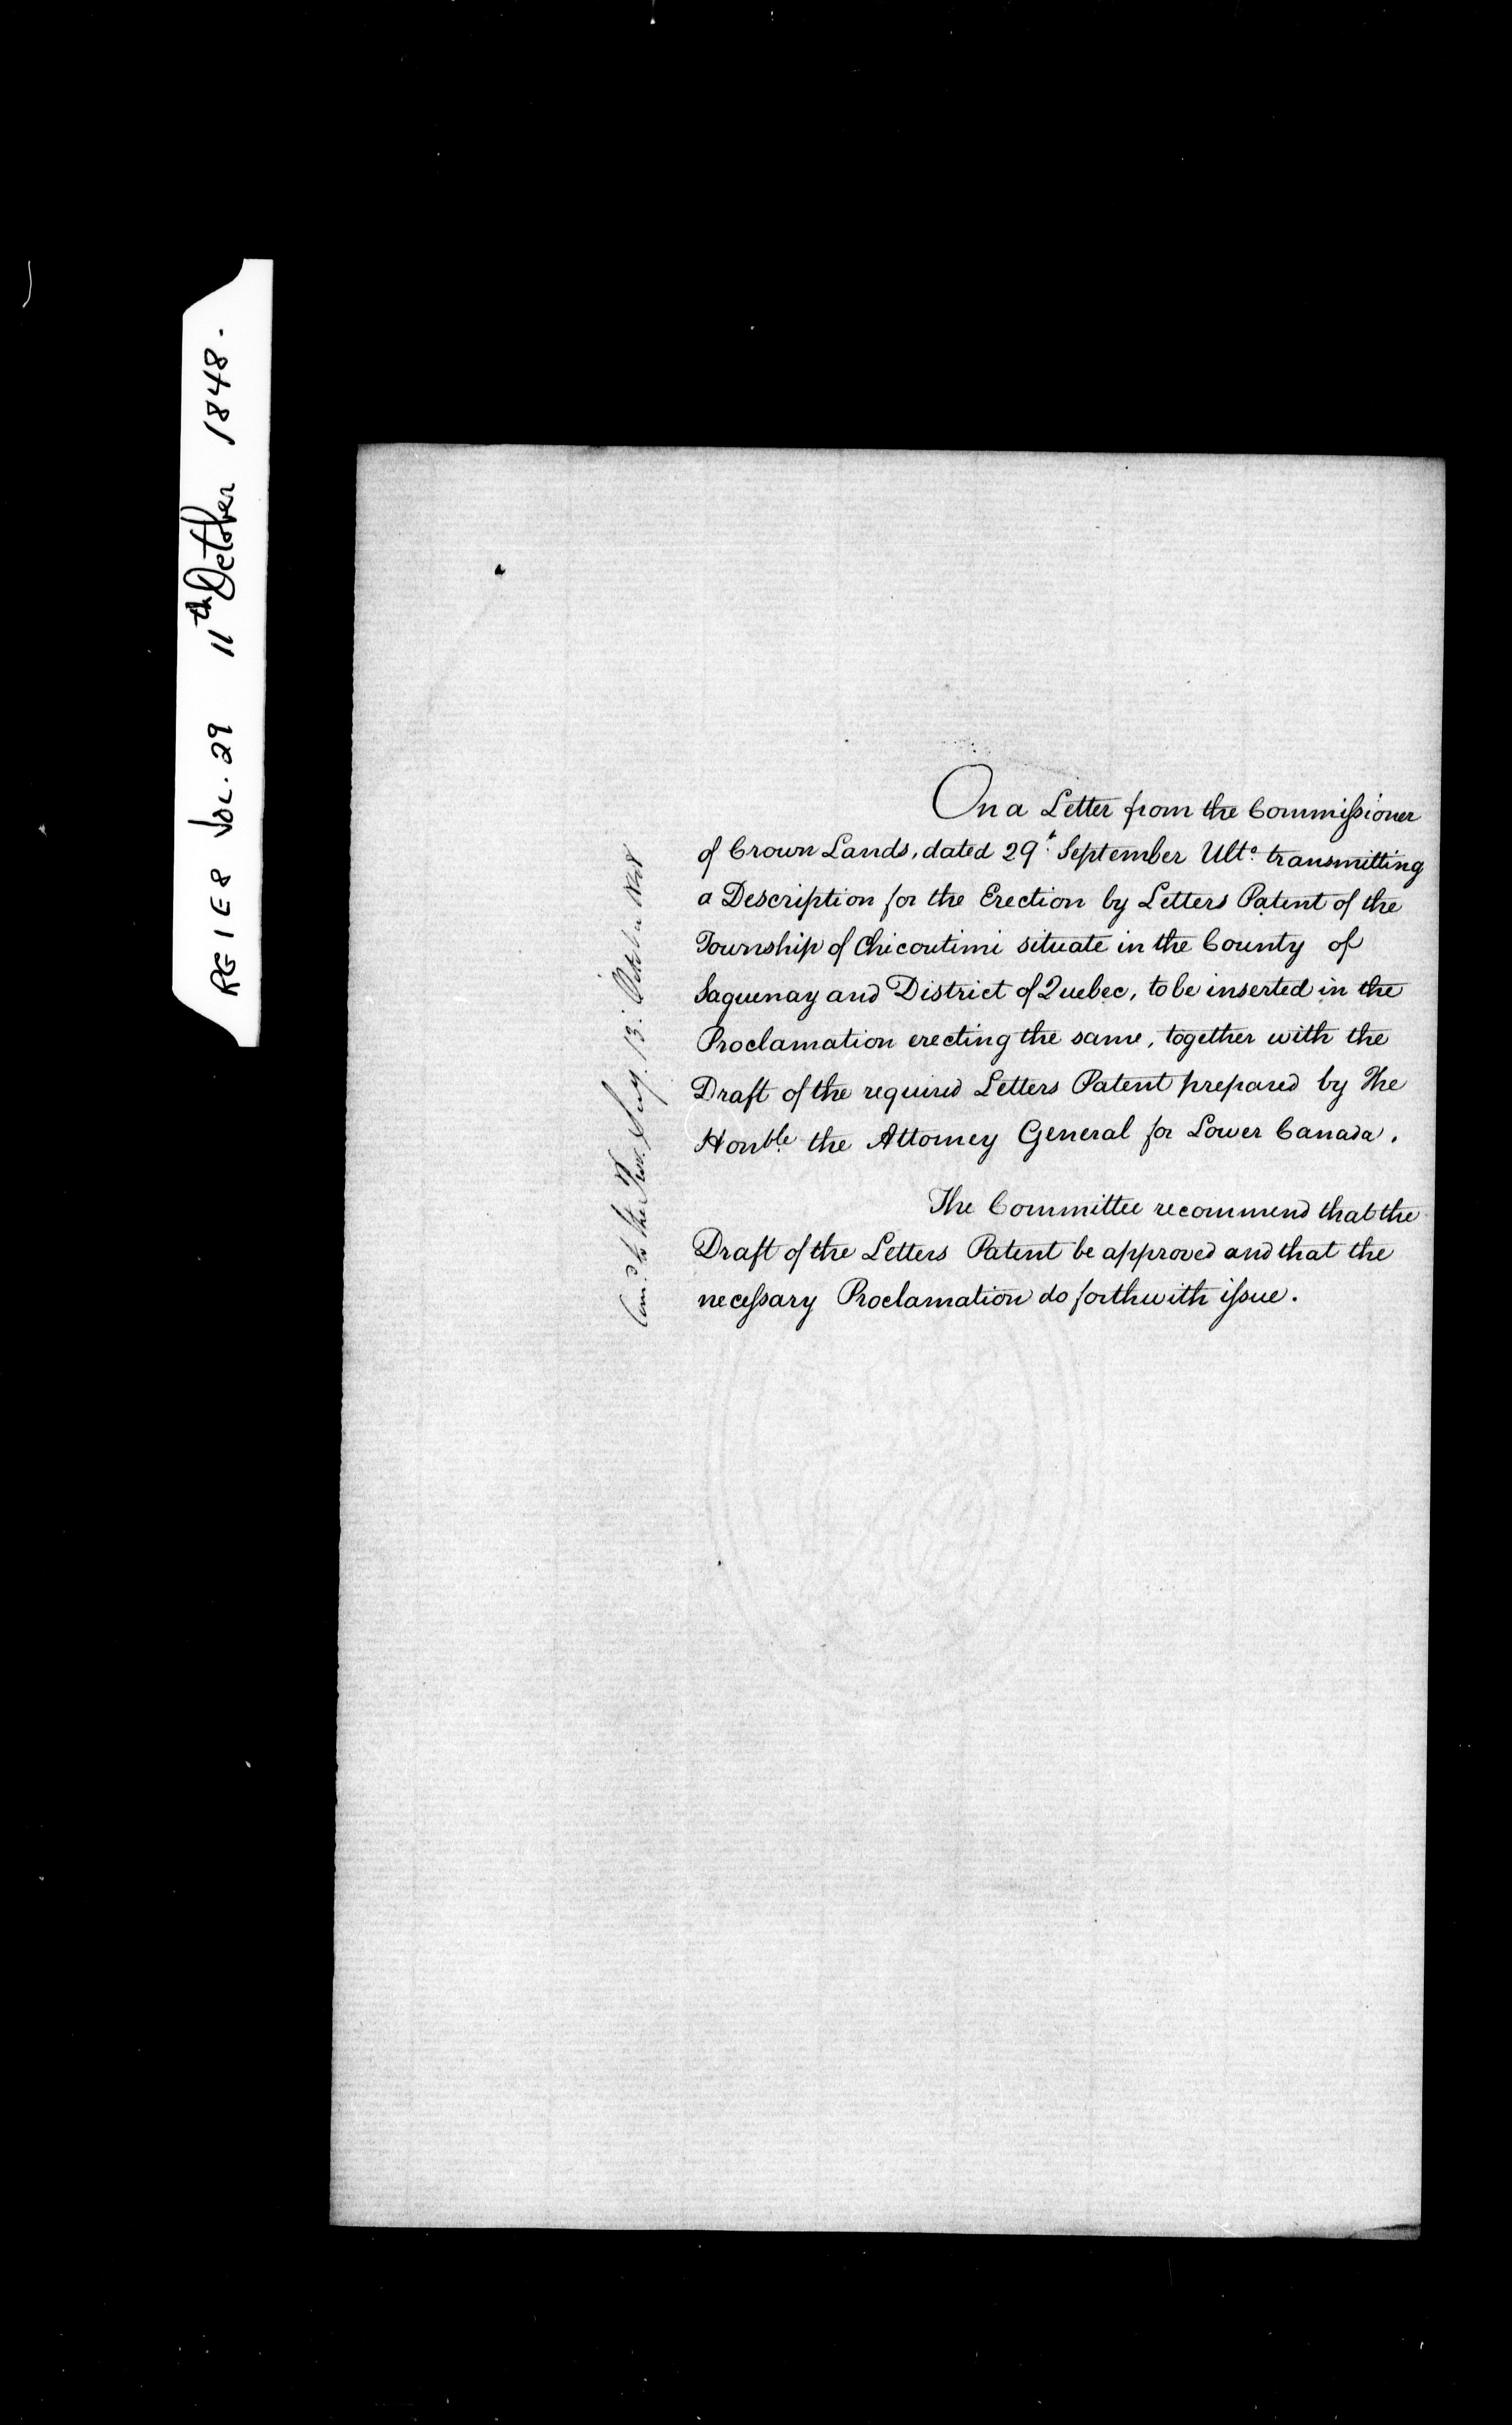 RG 1 E 8 VOL. 29 11th October 1848.
On a Letter from the Commissioner
of Crown Lands, dated 29th September Ulto. transmitting
a Description for the Erection by Letters Patent of the
Township of Chicoutimi situate in the County of
Saguenay and District of Quebec, to be inserted in the
Proclamation erecting the same, together with the
Draft of the required Letters Patent prepared by The
Honble. the Attorney General for Lower Canada.
The Committee recommend that the
Draft of the Letters Patent be approved and that the
necessary Proclamation do forthwith issue.
to the Secy. 13. October 1848